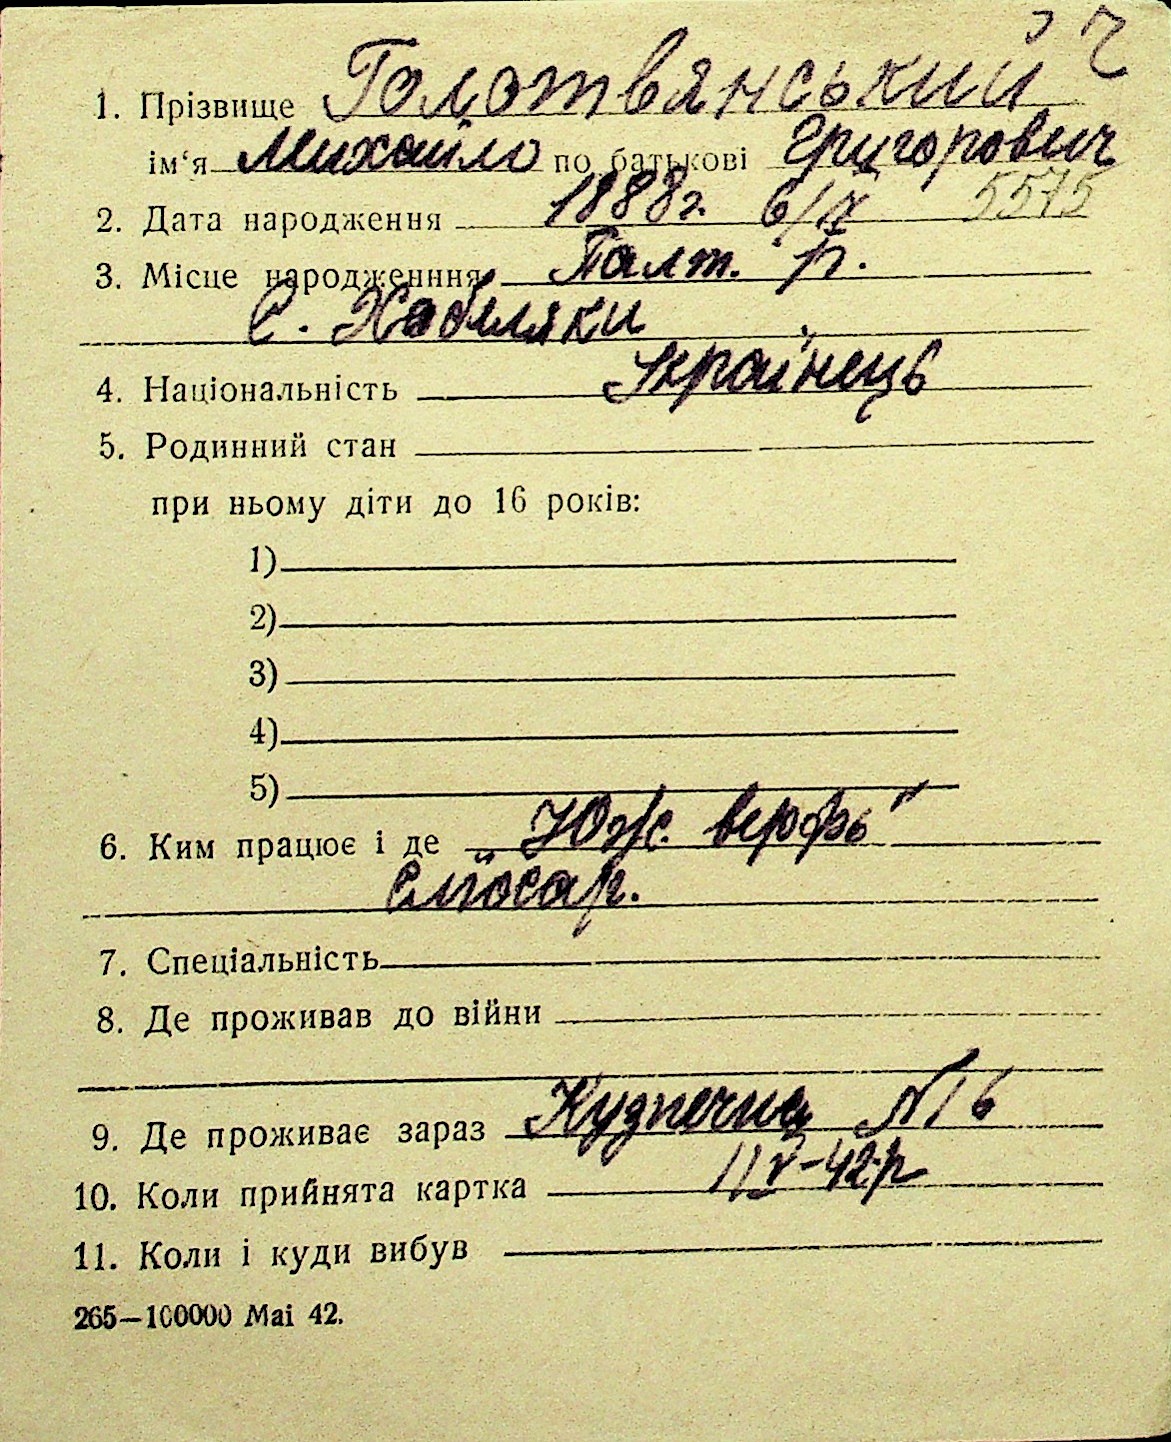 ч
1. Прізвище Голотвянський
ім‘я Михайло по батькові Григорович
2. Дата народження 1888г. 6/IX 5575
3. Місце народженння Палт. р.
с. Хабиляки
4. Національність Українець
5. Родинний стан
при ньому діти до 16 років:
1)
2)
3)
4)
5)
6. Ким працює і де „Юж. верфь"
слюсар.
7. Спеціальність
8. Де проживав до війни
9. Де проживає зараз Кузнечна №16
10. Коли прийнята картка
11. Коли і куди вибув
265—100000 Mai 42.